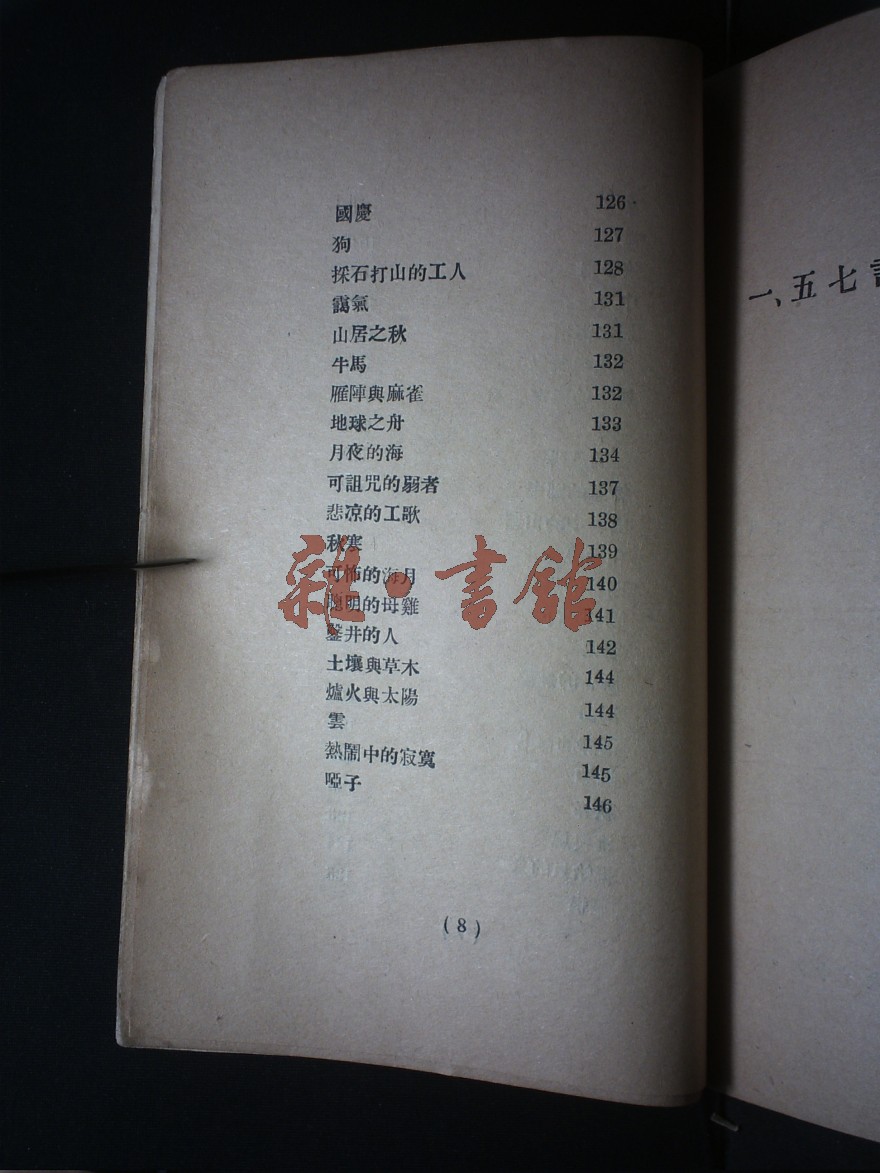 國慶 126
狗 127
採石打山的工人 128
靄氣 131
山居之秋 131
牛馬 132
雁陣與麻雀 132
地球之舟 133
月夜的海 134
可詛咒的弱者 137
悲凉的工歌 138
秋寒 139
可怖的海月 140
聰明的母雞 141
鑿井的人 142
土壤與草木 144
爐火與太陽 144
雲 145
熱鬧中的寂寞 145
啞子 146
(8)
雜·書館
一、五七